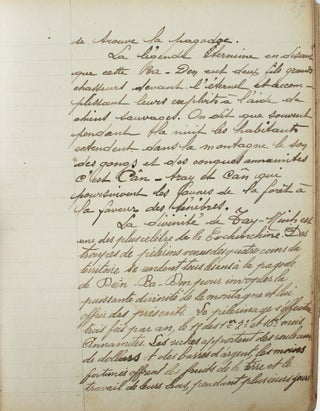 se trouve la pagode.
La légende termine en disant
que cette Ba-Den eut deux fils grands
chasseurs devant l'éternel et accom-
plissant leurs exploits à l'aide de
chiens sauvages. On dit que souvent
pendant la nuit les habitants
entendent dans la montagne le son
des gongs et des conques annamites
c'est Can- et Can qui
poursuivent les faunes de la forêt à
la faveur des ténèbres.
La divinité de Tay-Ninh est
une des plus célèbre de la Cochinchine. Des
troupes de pèlerins venus des quatre coins du
territoire se rendent tous les ans à la pagode
de Dên-Ba-Den pour invoquer la
puissante divinité de la montagne et lui
offrir des présents. Le pèlerinage s'effectue
trois fois par an, le des 1er et mois
Annamites. Les riches apportent des rouleaux
de dollars et des barres d'argent, les moins
fortunés offrent les fruits de la terre et le
travail de leurs bras, pendant plusieurs jours